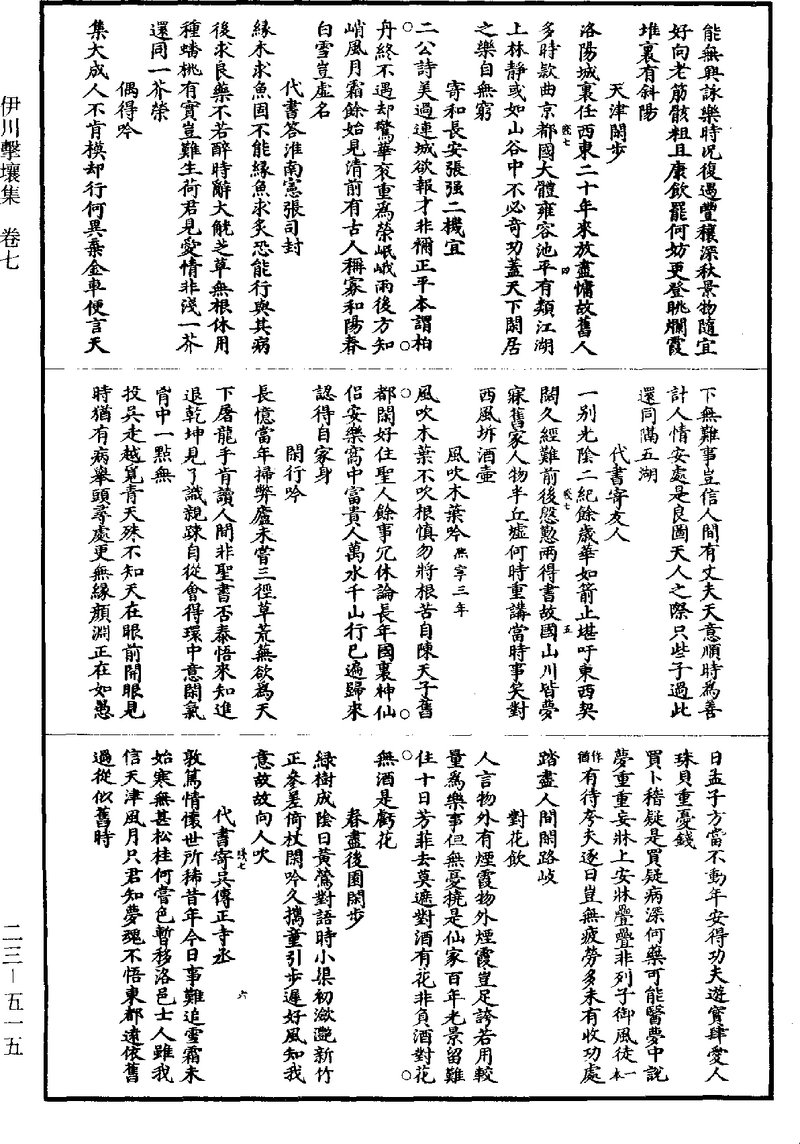 能無興詠樂時況復遇豐穰深秋景物隨宜
好向老筋骸粗且康飲罷何妨更登眺爛霞
堆裏有斜陽
天津閑步
洛陽城裏任西東二十年來放盡慵故舊人
多時款曲京都國大體雍容池平有類江湖
上林靜或如山谷中不必奇功蓋天下閑居
之樂自無窮
寄和長安張强二機宜
二公詩美過連城欲報才非禰正平本謂柏
舟終不遇却驚華衮重為榮岷峨雨後方知
峭風月霜餘始見清前有古人稱寡和陽春
白雪豈虛名
代書答淮南憲張司封
緣木求魚固不能緣魚求炙恐能行與其病
後求良藥不若醉時辭大觥芝草無根休用
種蟠桃有實豈難生荷君見愛情非淺一芥
還同一芥榮
偶得吟
集大成人不肯模却行何異棄金車便言天
下無難事豈信人間有丈夫天意順時為善
計人情安處是良圖天人之際只些子過此
還同隔五湖
代書寄友人
一別光陰二紀餘歲華如箭止堪吁東西契
闊久經難前後慇懃兩得書故國山川皆夢
寐舊家人物半丘墟何時重講當時事矣對
西風坼酒壺
風吹木葉吟熙寧三年
風吹木葉不吹根慎勿將根苦自陳天子舊
都閑好住聖人餘事冗休論長年國裏神仙
侶安樂窩中富貴人萬水千山行已遍歸來
認得自家身
閑行吟
長憶當年掃弊廬未嘗三徑草荒蕪欲為天
下屠龍手肯讀人間非聖書否泰悟來知進
退乾坤見了識親疎自從會得環中意閑氣
胷中一點無
投吳走越覓青天殊不知天在眼前開眼見
時猶有病舉頭尋處更無緣顏淵正在如愚
日孟子方當不動年安得功夫遊寶肆愛人
珠貝重憂錢
買卜稽疑是買疑病深何藥可能醫夢中說
夢重重妄牀上安牀疊疊非列子御風徒一本
作猶有待夸夫逐日豈無疲勞多未有收功處
踏盡人間閑路岐
對花飲
人言物外有煙霞物外煙霞豈足誇若用較
量為樂事但無憂撓是仙家百年光景留難
住十日芳菲去莫遮對酒有花非負酒對花
無酒是虧花
春盡後園閑步
綠樹成陰日黃鶯對語時小渠初瀲灩新竹
正參差倚杖閑吟久攜童引步遲好風知我
意故故向人吹
代書寄吳傳正寺丞
敦篤情懷世所稀昔年今日事難追雪霜未
始寒無甚松桂何嘗色暫移洛邑士人雖我
信天津風月只君知夢魂不悟東都遠依舊
過從似舊時
伊川擊壤集　卷七
二三－五一五